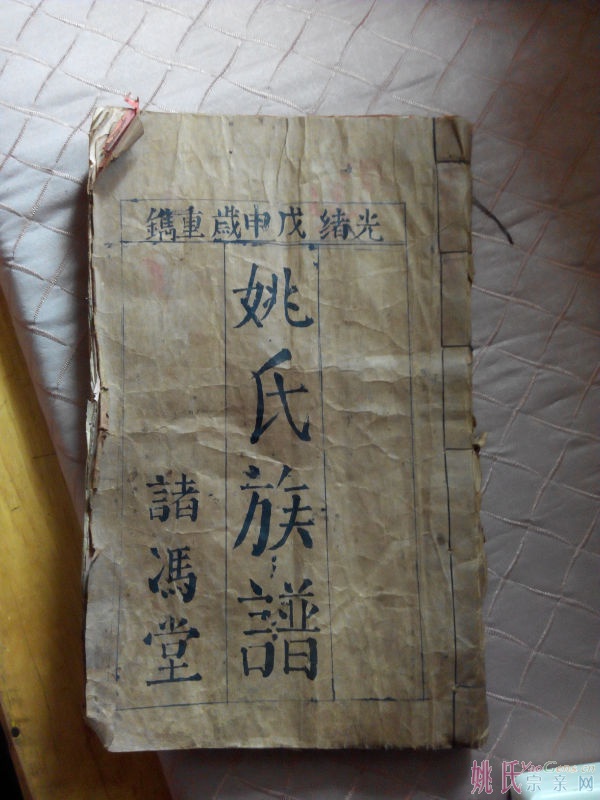 光緒戊申歲重鐫
姚氏族譜
諸馮堂
姚氏宗亲网